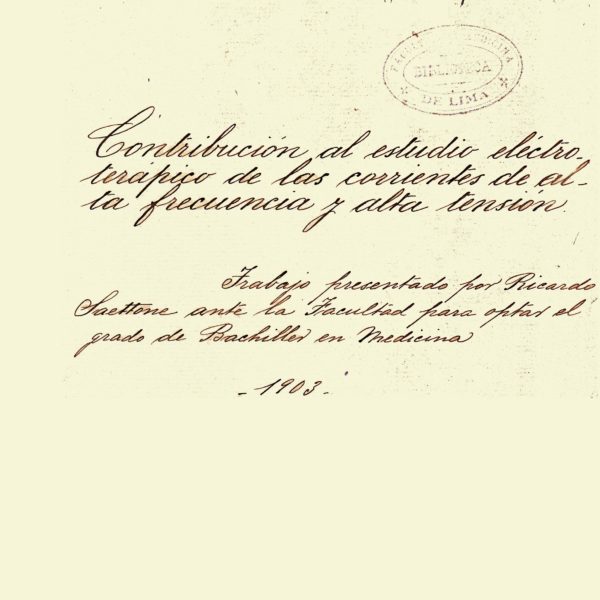 FACULTAD DE MEDICINA
BIBLIOTECA
DE LIMA
Contribución al estudio eléctro-
terápico de las corrientes de al-
ta frecuencia y alta tensión.
Trabajo presentado por Ricardo
Saettone ante la Facultad para optar el
grado de Bachiller en Medicina
- 1903 -